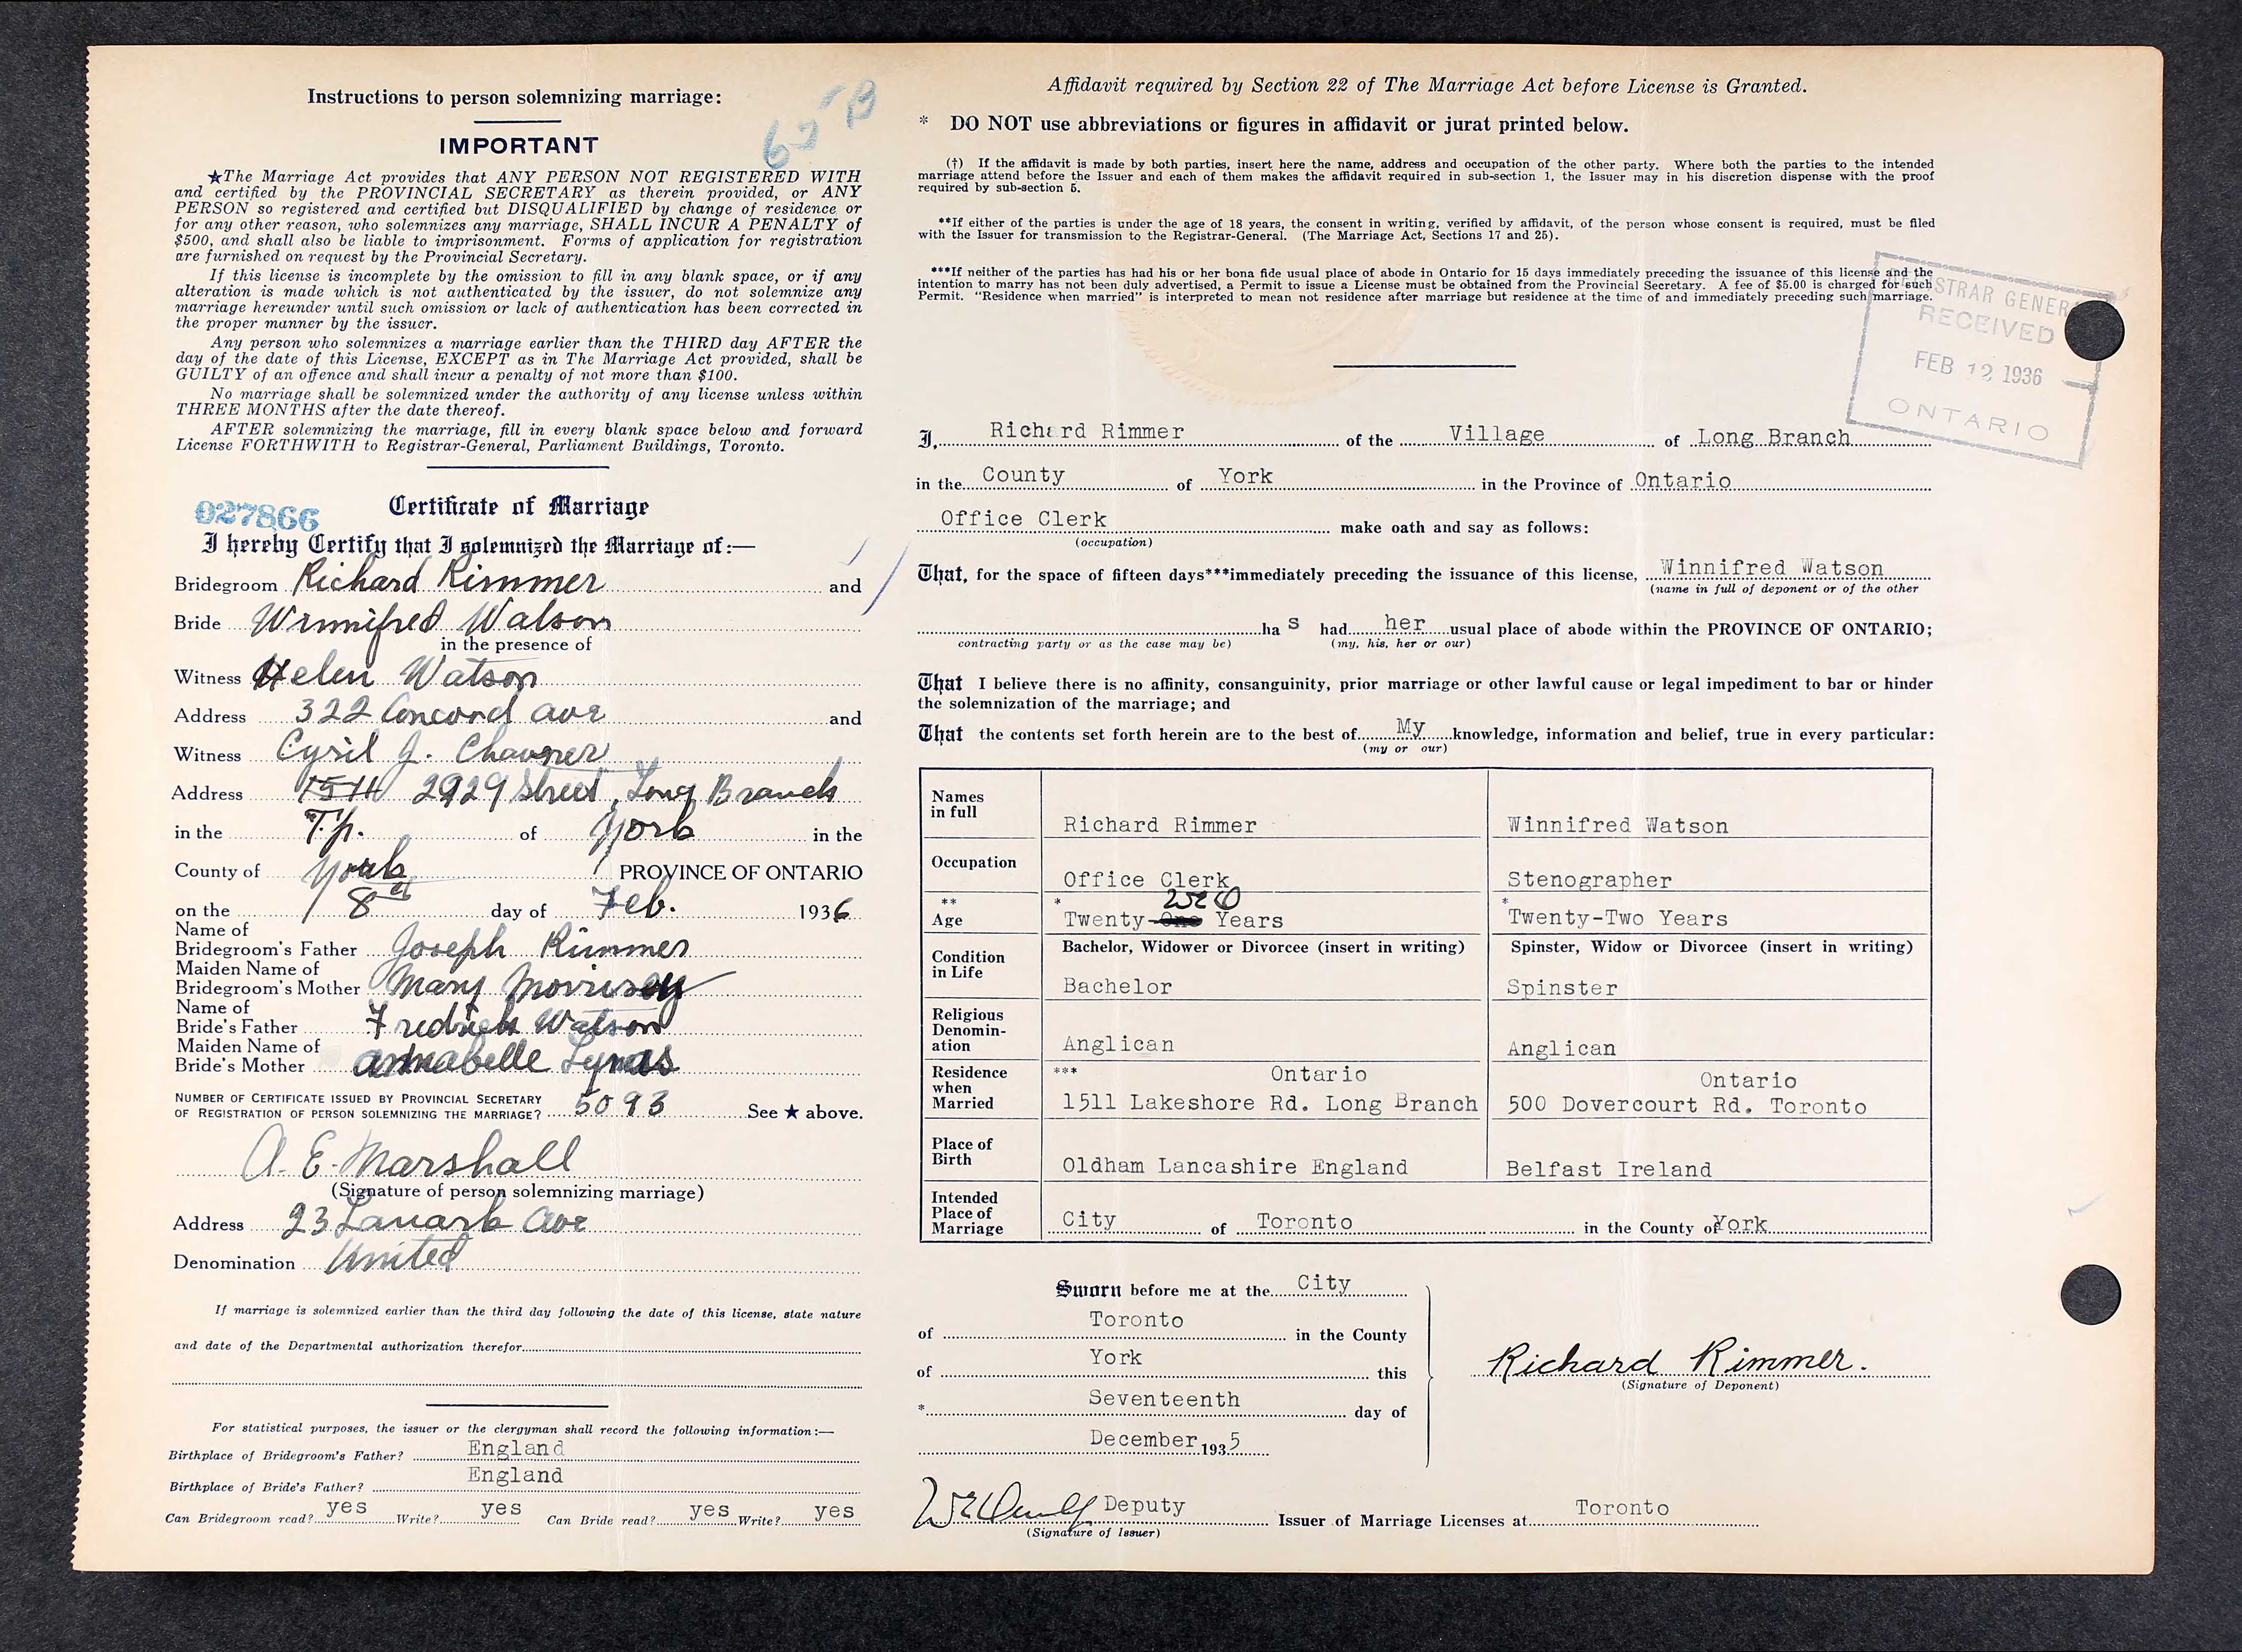 Instructions to person solemnizing marriage:
65 B
IMPORTANT
★The Marriage Act provides that ANY PERSON NOT REGISTERED WITH
and certified by the PROVINCIAL SECRETARY as therein provided, or ANY
PERSON so registered and certified but DISQUALIFIED by change of residence or
for any other reason, who solemnizes any marriage, SHALL INCUR A PENALTY of
$500, and shall also be liable to imprisonment. Forms of application for registration
are furnished on request by the Provincial Secretary.
If this license is incomplete by the omission to fill in any blank space, or if any
alteration is made which is not authenticated by the issuer, do not solemnize any
marriage hereunder until such omission or lack of authentication has been corrected in
the proper manner by the issuer.
Any person who solemnizes a marriage earlier than the THIRD day AFTER the
day of the date of this License, EXCEPT as in The Marriage Act provided, shall be
GUILTY of an offence and shall incur a penalty of not more than $100.
No marriage shall be solemnized under the authority of any license unless within
THREE MONTHS after the date thereof.
AFTER solemnizing the marriage, fill in every blank space below and forward
License FORTHWITH to Registrar-General, Parliament Buildings, Toronto.
027866 Certificate of Marriage
I hereby Certify that I solemnized the Marriage of:—
Bridegroom Richard Rimmer and
Bride Winnifred Watson
in the presence of
Witness Helen Watson
Address 322 Concord Ave and
Witness Cyril J. Chavner
Address 15TH 2929 Street, Long Branch
in the Tp. of York in the
County of York PROVINCE OF ONTARIO
on the 8th day of Feb. 1936
Name of
Bridegroom's Father Joseph Rimmer
Maiden Name of
Bridegroom's Mother Mary Morrisey
Name of
Bride's Father Fredrick Watson
Maiden Name of
Bride's Mother Annabelle Lynas
NUMBER OF CERTIFICATE ISSUED BY PROVINCIAL SECRETARY
OF REGISTRATION OF PERSON SOLEMNIZING THE MARRIAGE? 5093 See ★ above.
A. E. Marshall
(Signature of person solemnizing marriage)
Address 23 Lanark Ave
Denomination United
If marriage is solemnized earlier than the third day following the date of this license, state nature
and date of the Departmental authorization therefor
For statistical purposes, the issuer or the clergyman shall record the following information:—
Birthplace of Bridegroom's Father? England
Birthplace of Bride's Father? England
Can Bridegroom read? yes Write? yes Can Bride read? yes Write? yes
Affidavit required by Section 22 of The Marriage Act before License is Granted.
* DO NOT use abbreviations or figures in affidavit or jurat printed below.
(†) If the affidavit is made by both parties, insert here the name, address and occupation of the other party. Where both the parties to the intended
marriage attend before the Issuer and each of them makes the affidavit required in sub-section 1, the Issuer may in his discretion dispense with the proof
required by sub-section 5.
**If either of the parties is under the age of 18 years, the consent in writing, verified by affidavit, of the person whose consent is required, must be filed
with the Issuer for transmission to the Registrar-General. (The Marriage Act, Sections 17 and 25).
***If neither of the parties has had his or her bona fide usual place of abode in Ontario for 15 days immediately preceding the issuance of this license and the
intention to marry has not been duly advertised, a Permit to issue a License must be obtained from the Provincial Secretary. A fee of $5.00 is charged for such
Permit. "Residence when married" is interpreted to mean not residence after marriage but residence at the time of and immediately preceding such marriage.
REGISTRAR GENER
RECEIVED
FEB 12 1936
ONTARIO
I, Richard Rimmer of the Village of Long Branch
in the County of York in the Province of Ontario
Office Clerk make oath and say as follows:
(occupation)
That, for the space of fifteen days***immediately preceding the issuance of this license, Winnifred Watson
(name in full of deponent or of the other
has had her usual place of abode within the PROVINCE OF ONTARIO;
contracting party or as the case may be) (my, his, her or our)
That I believe there is no affinity, consanguinity, prior marriage or other lawful cause or legal impediment to bar or hinder
the solemnization of the marriage; and
That the contents set forth herein are to the best of My knowledge, information and belief, true in every particular:
(my or our)
Names
in full Richard Rimmer Winnifred Watson
Occupation Office Clerk Stenographer
** Age * Twenty-One Years * Twenty-Two Years
Condition
in Life Bachelor, Widower or Divorcee (insert in writing) Spinster, Widow or Divorcee (insert in writing)
Bachelor Spinster
Religious
Denomin-
ation Anglican Anglican
Residence
when
Married *** Ontario Ontario
1511 Lakeshore Rd. Long Branch 500 Dovercourt Rd. Toronto
Place of
Birth Oldham Lancashire England Belfast Ireland
Intended
Place of
Marriage City of Toronto in the County of York
Sworn before me at the City
of Toronto in the County
of York this
* Seventeenth day of
December 1935
Richard Rimmer.
(Signature of Deponent)
Deputy Issuer of Marriage Licenses at Toronto
(Signature of Issuer)